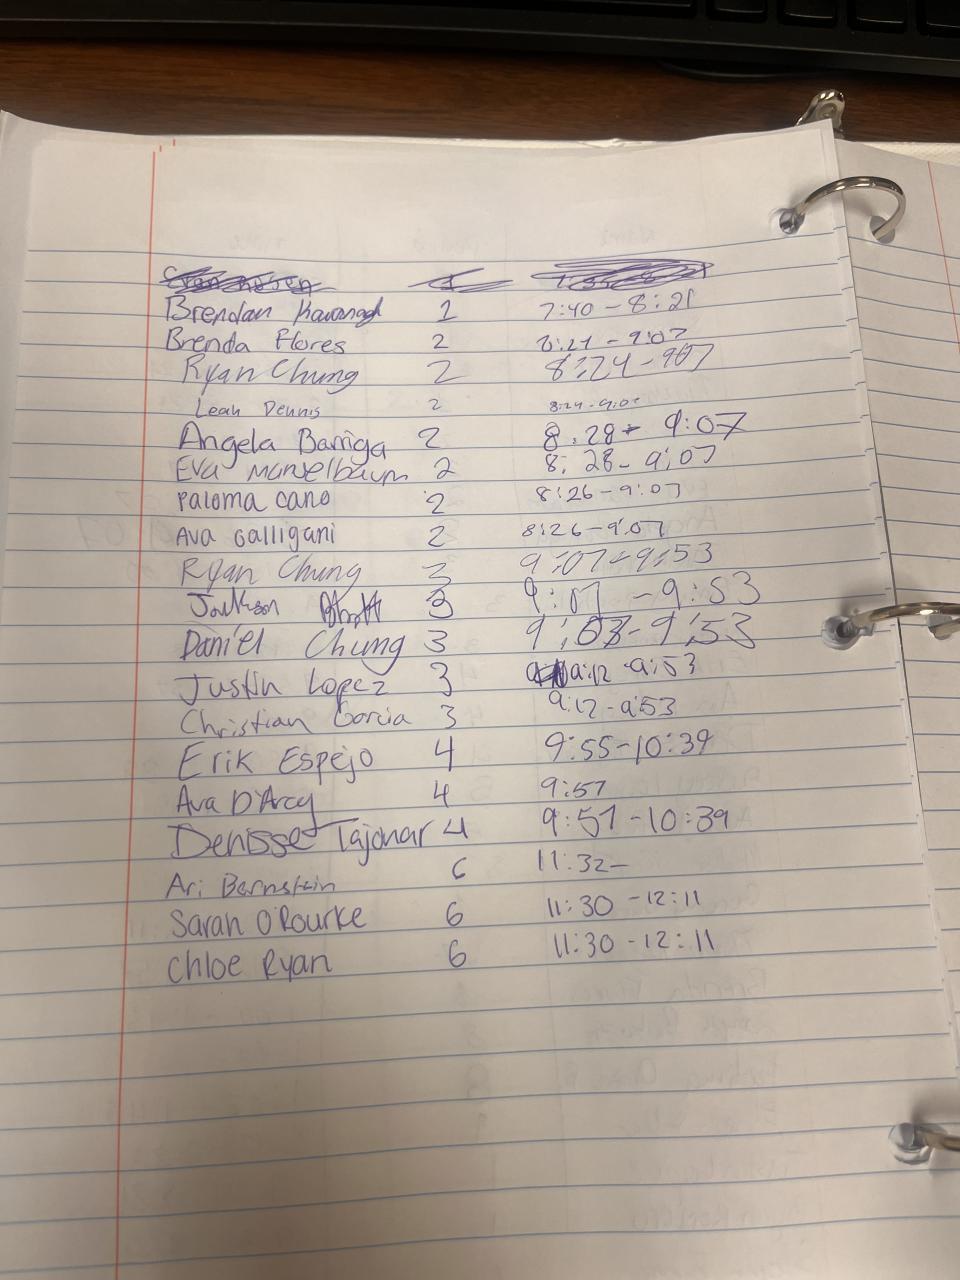 Brendan Kavanagh 1 7:40 - 8:21
Brenda Flores 2 8:21 - 9:07
Ryan Chung 2 8:24 - 907
Leah Dennis 2 8:24 - 9:07
Angela Barriga 2 8:28 - 9:07
Eva Mandelbaum 2 8:28 - 9:07
Paloma Cano 2 8:26 - 9:07
Ava Galligani 2 8:26 - 9:07
Ryan Chung 3 9:07 - 9:53
Jackson 3 9:07 - 9:53
Daniel Chung 3 9:08 - 9:53
Justin Lopez 3 9:12 - 9:53
Christian Garcia 3 9:12 - 9:53
Erik Espejo 4 9:55 - 10:39
Ava D'Arcy 4 9:57
Denisse Tajonar 4 9:57 - 10:39
Ari Bernstein 6 11:32 -
Sarah O'Rourke 6 11:30 - 12:11
Chloe Ryan 6 11:30 - 12:11